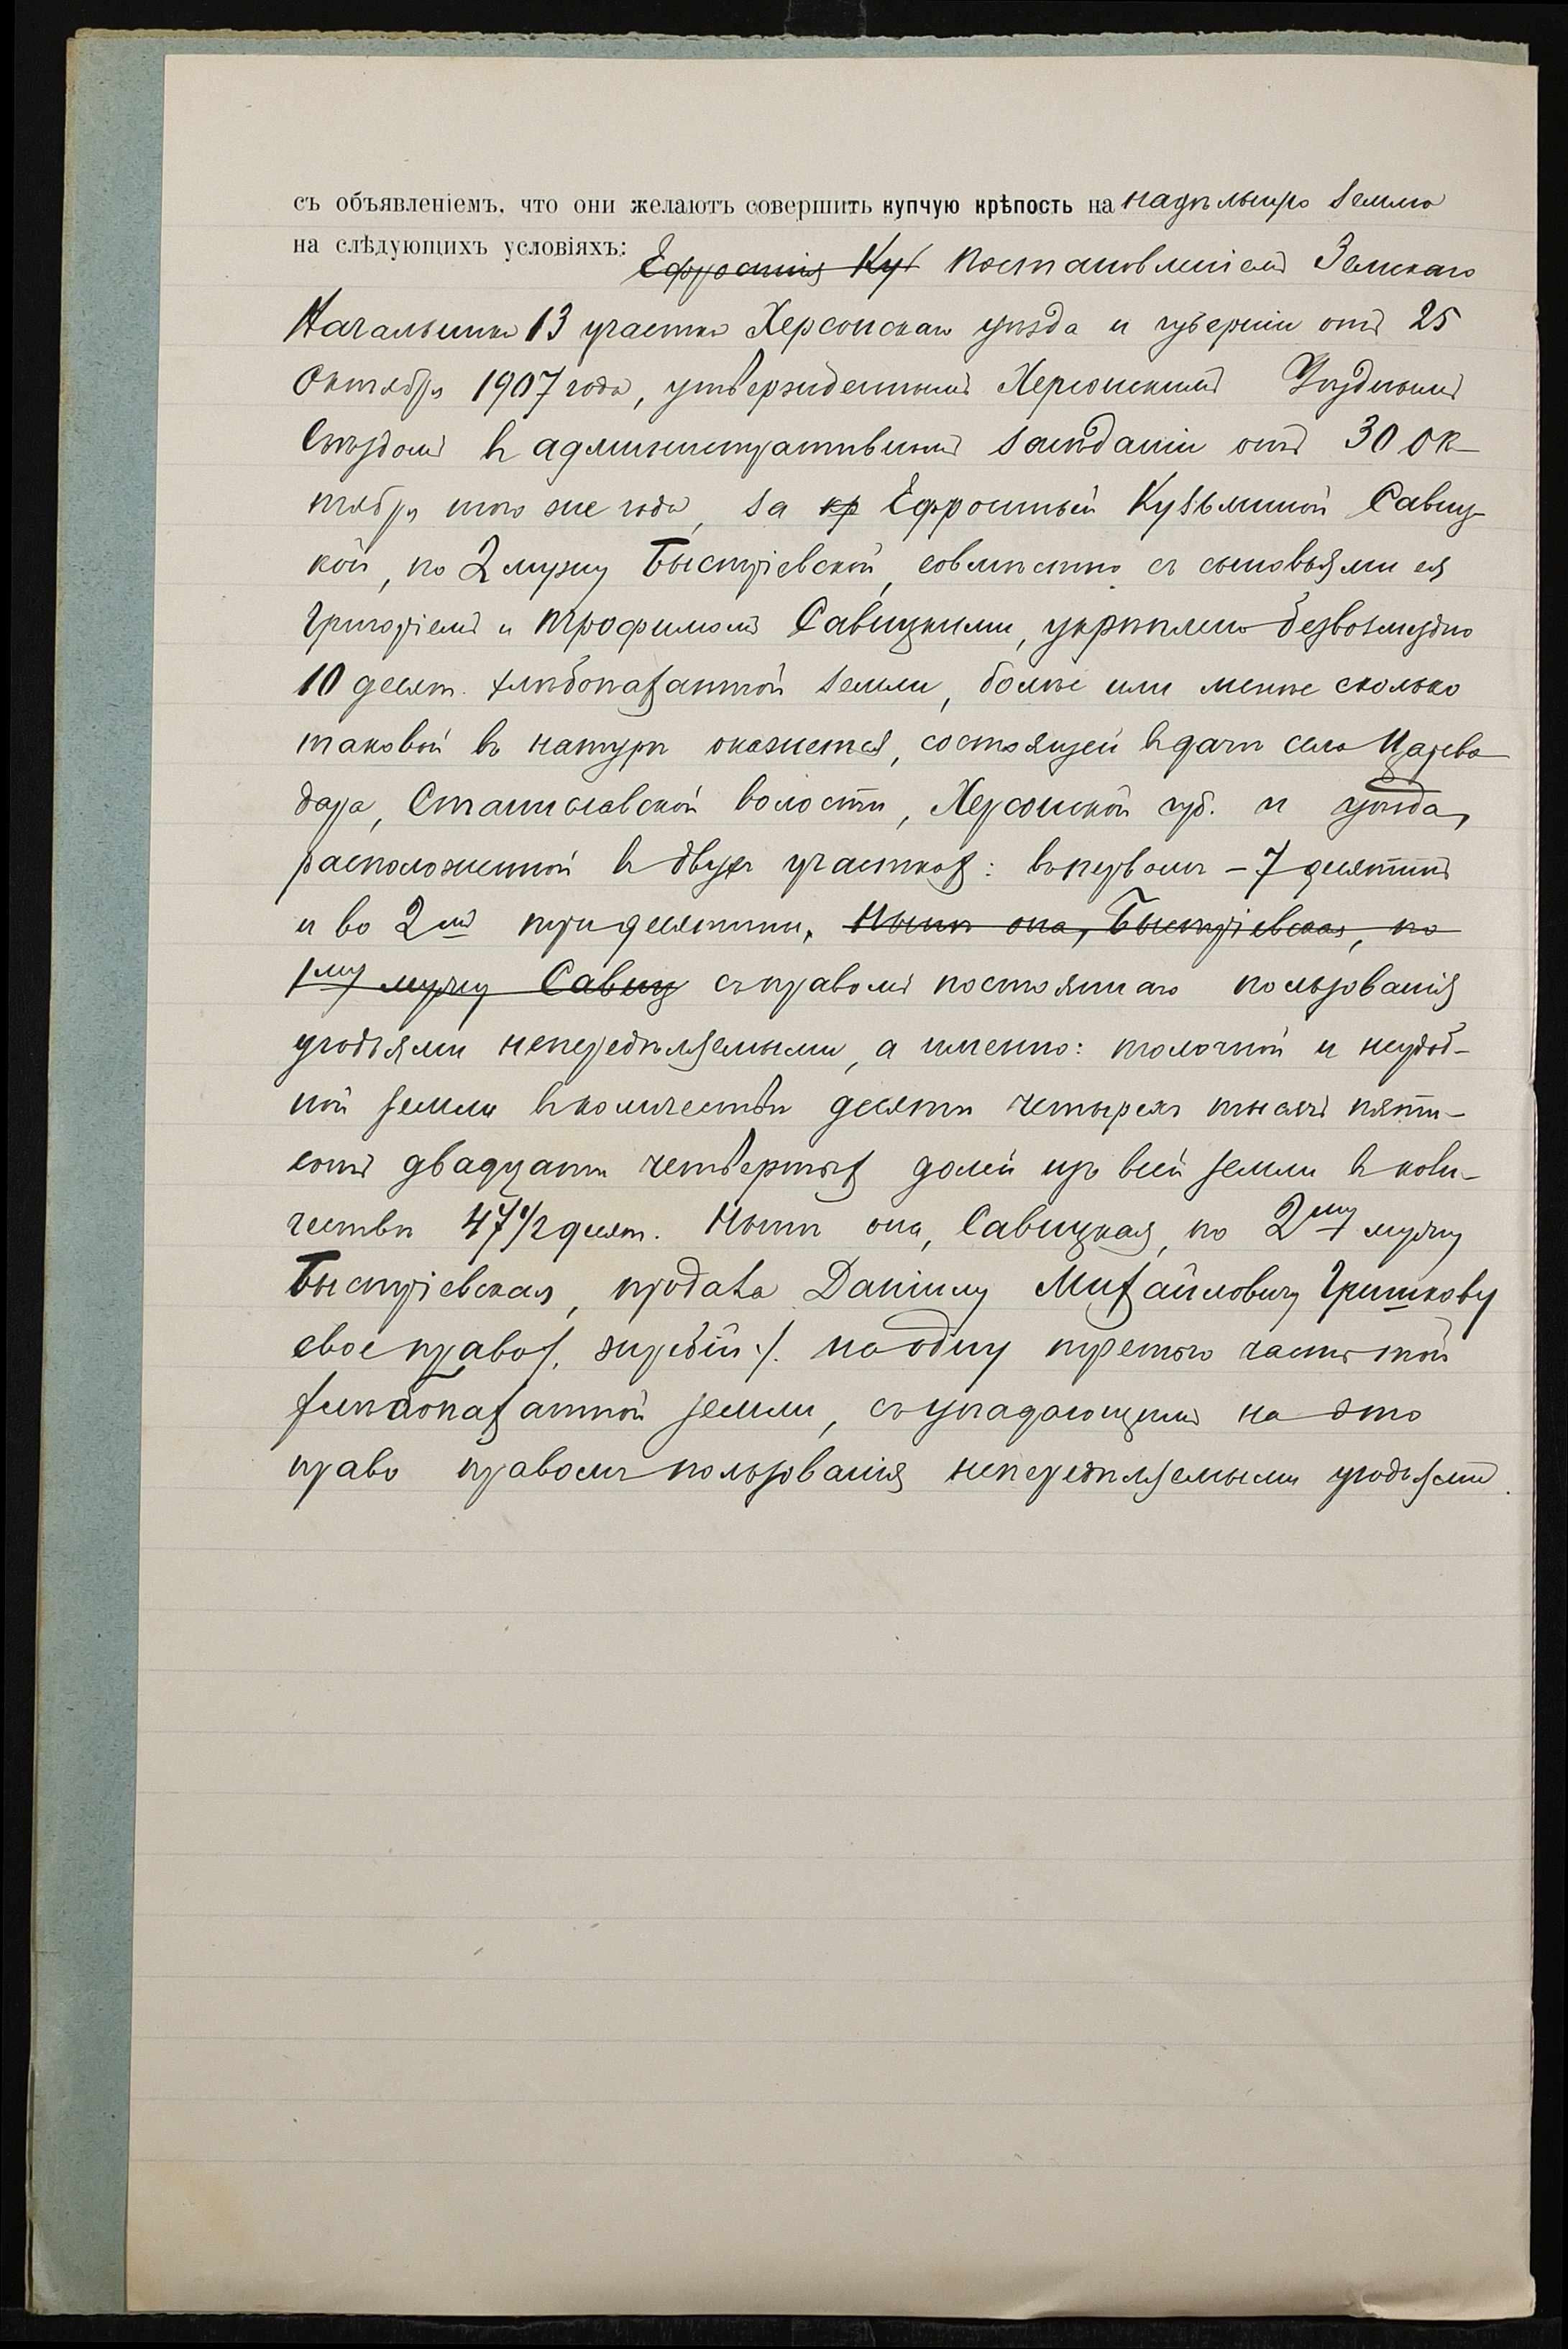 съ объявленіемъ, что они желаютъ совершить купчую крѣпость на надѣльную землю
на слѣдующихъ условіяхъ: Ефросинія Куз Постановленіемъ Земскаго
Начальника 13 участка Херсонскаго уѣзда и губерніи отъ 25
Октября 1907 года, утвержденнымъ Херсонскимъ Уѣзднымъ
Съѣздомъ въ административномъ засѣданіи отъ 30 Ок-
тября того же года, за кр Ефросиньей Кузьминой Савиц-
кой, по 2 мужу Быстріевской, совмѣстно съ сыновьями ея
Григоріемъ и Трофимомъ Савицкими, укрѣплено безвозмездно
10 десят. хлѣбопахатной земли, болѣе или менѣе сколько
таковой въ натурѣ окажется, состоящей въ дачѣ села Царево
дара, Станиславской волости, Херсонской губ. и уѣзда,
расположенной въ двухъ участкахъ: въ первомъ – 7 десятинъ
и во 2мъ три десятины, Нынѣ она, Быстріевская, по
1му мужу Савиц съ правомъ постояннаго пользованія
угодьями непередѣляемыми, а именно: толочной и неудоб-
ной земли въ количествѣ десяти четырехъ тысячъ пяти-
сотъ двадцати четвертыхъ долей изъ всей земли въ коли-
чествѣ 47 1/2 десят. Нынѣ она, Савицкая, по 2му мужу
Быстріевская, продала Даніилу Михайловичу Гришкову
свое право /. жребій ./. на одну третью часть той
хлѣбопахатной земли, съ упадающимъ на это
право правомъ пользованія непередѣляемыми угодьями.